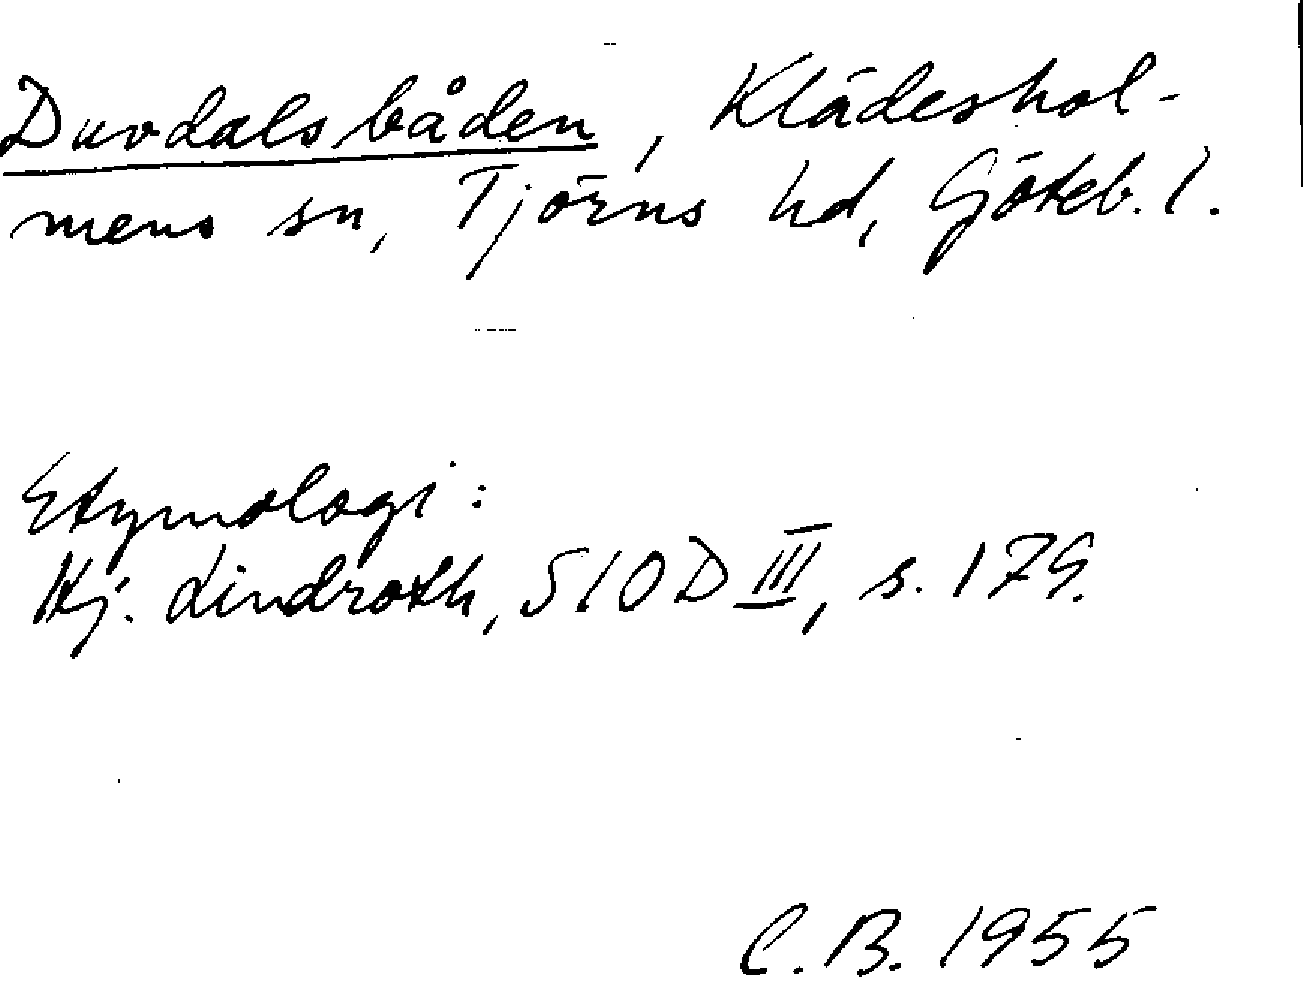 Duvdalsbåden, Klädeshol-
mens sn, Tjörns hd, Göteb. l.
Etymologi:
Hj. Lindroth, SIOD III, s. 179.
C.B. 1955